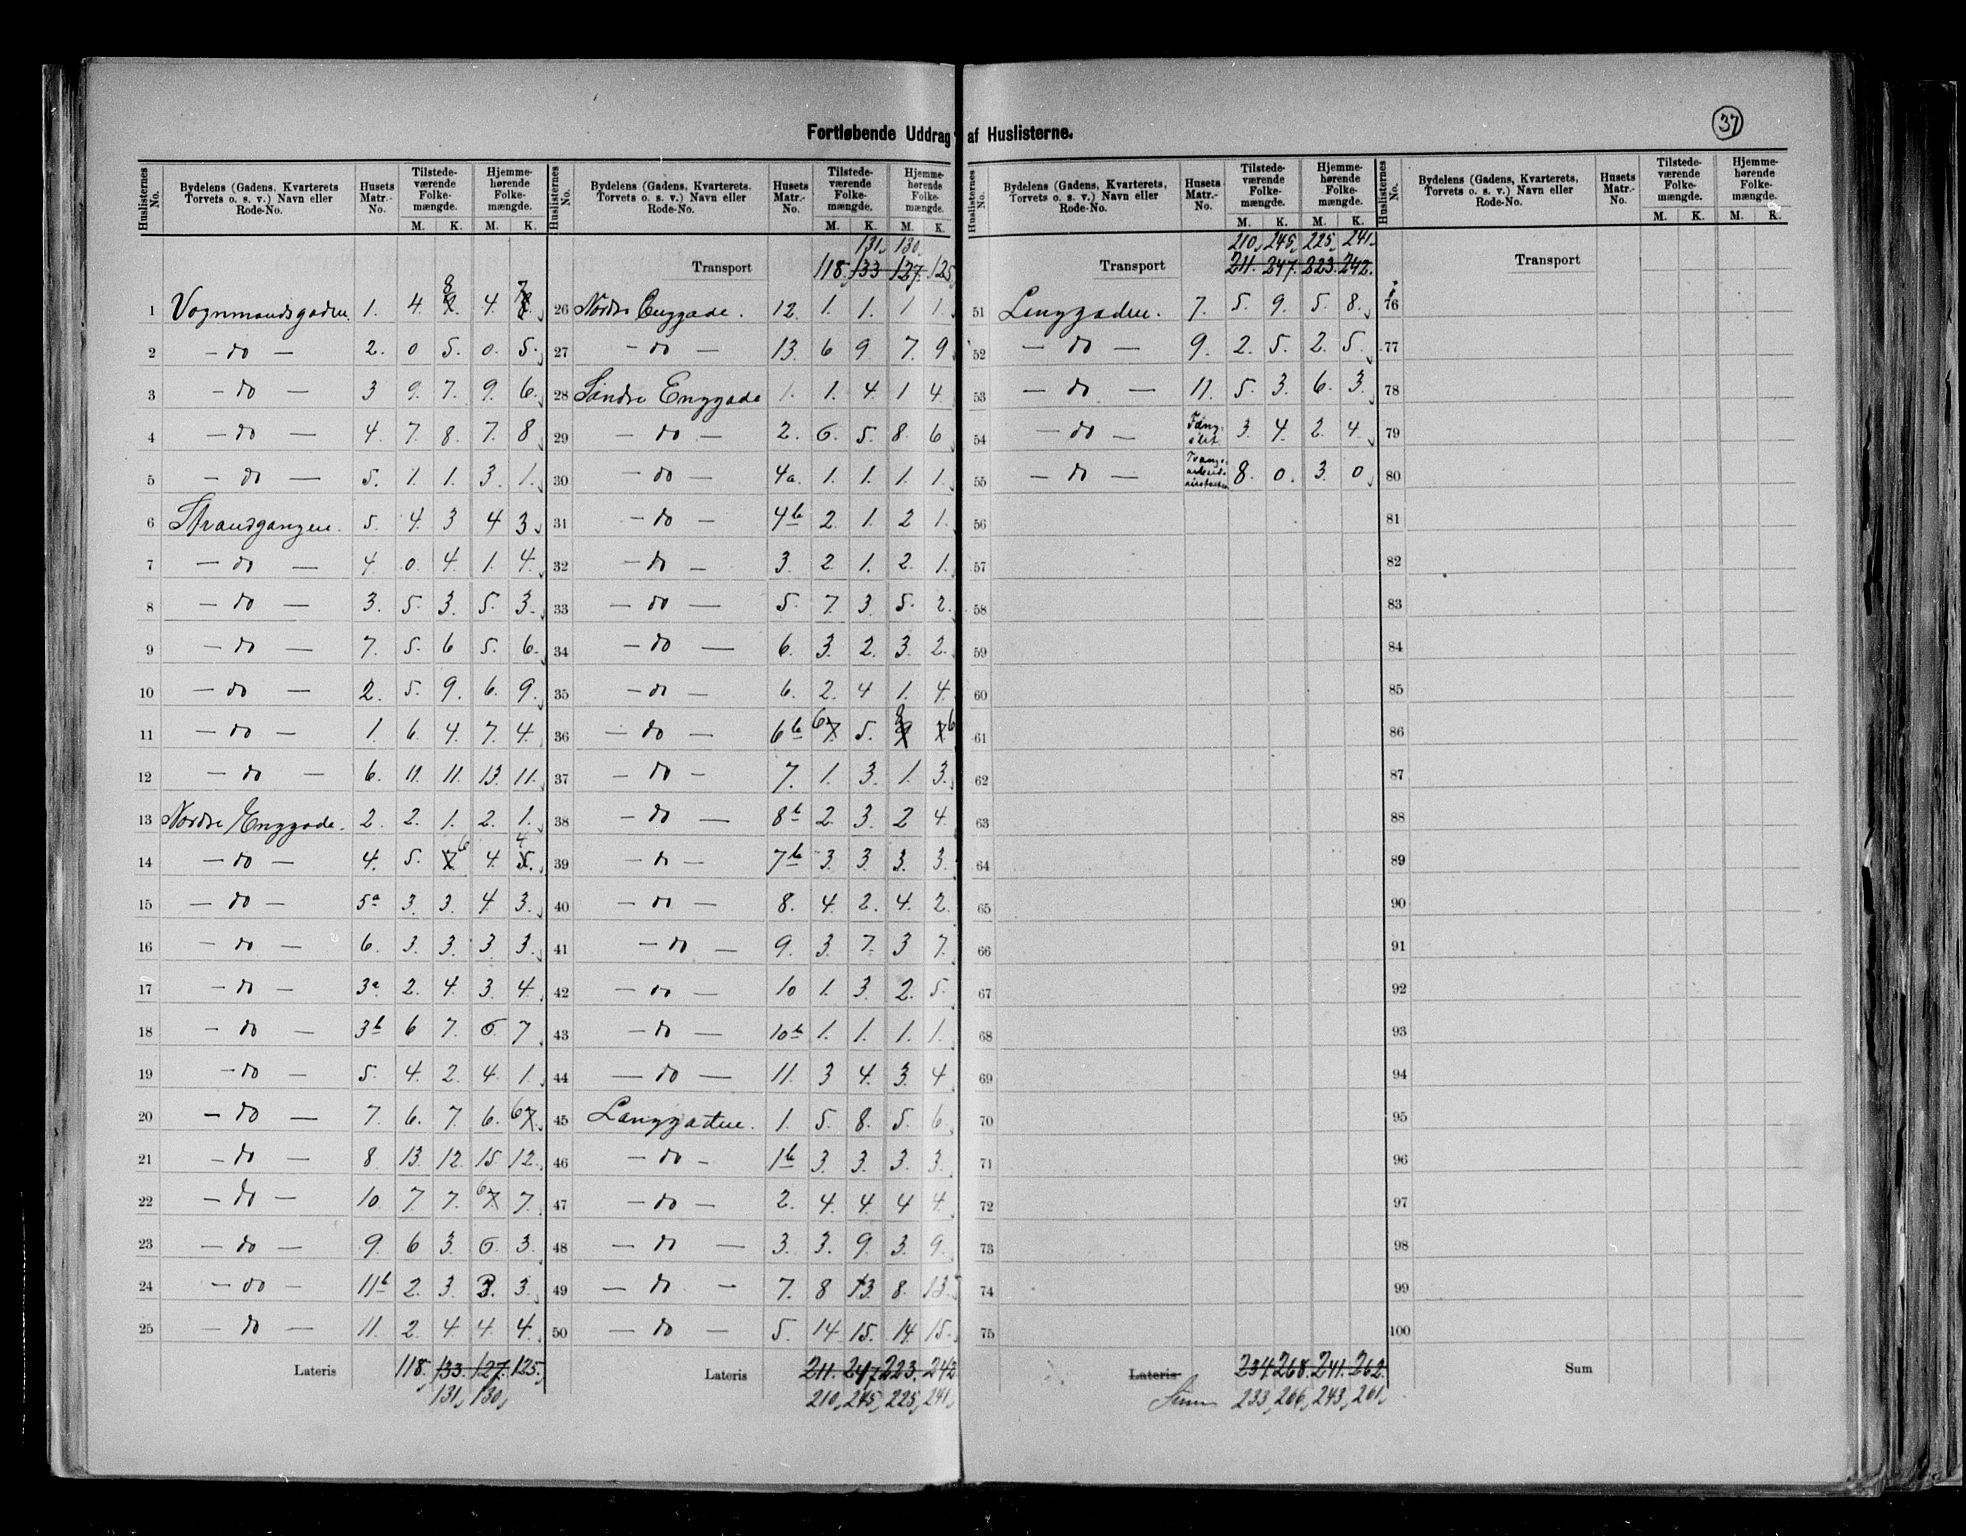 Fortløbende Uddrag af Huslisterne.
37
Huslisternes No. Bydelens (Gadens, Kvarterets, Torvets o. s. v.) Navn eller Rode-No. Husets Matr.-No. Tilstedeværende Folkemængde. M. K. Hjemmehørende Folkemængde. M. K.
1 Vognmandsgaden. 1. 4. 9. 8 4. 8. 7
2 — do — 2. 0 5. 0. 5.
3 — do — 3 9. 7. 9. 6.
4 — do — 4. 7. 8. 7. 8
5 — do — 5. 1. 1. 3. 1.
6 Strandgangen. 5. 4. 3 4 3.
7 — do — 4. 0. 4. 1. 4.
8 — do — 3. 5. 3. 5. 3.
9 — do — 7. 5. 6 5. 6.
10 — do — 2. 5. 9. 6. 9.
11 — do — 1. 6. 4. 7. 4.
12 — do — 6. 11. 11. 13. 11.
13 Nordre Enggade. 2. 2. 1. 2. 1.
14 — do — 4. 5. 7. 6 4. 5. 4
15 — do — 5a 3. 3. 4 3.
16 — do — 6. 3. 3. 3 3.
17 — do — 3a 2. 4. 3. 4.
18 — do — 3b 6 7. 6. 7
19 — do — 5. 4. 2. 4. 1.
20 — do — 7. 6. 7. 6. 6 7.
21 — do — 8. 13. 12. 15. 12.
22 — do — 10. 7. 7. 6 7. 7.
23 — do — 9. 6 3. 6. 3.
24 — do — 11b 2. 3. 3. 3.
25 — do — 11. 2. 4. 4. 4.
Lateris 118. 133. 127. 125.
131, 130,
Huslisternes No. Bydelens (Gadens, Kvarterets, Torvets o. s. v.) Navn eller Rode-No. Husets Matr.-No. Tilstedeværende Folkemængde. M. K. Hjemmehørende Folkemængde. M. K.
131, 130,
Transport 118. 133 127. 125
26 Nordre Enggade. 12. 1. 1. 1 1.
27 — do — 13. 6 9. 7. 9.
28 Söndre Enggade 1. 1. 4. 1 4.
29 — do — 2. 6. 5. 8. 6
30 — do — 4a. 1. 1. 1. 1.
31 — do — 4b 2. 1. 2 1.
32 — do — 3. 2. 1. 2. 1.
33 — do — 5. 7. 3. 5. 2.
34 — do — 6. 3. 2. 3. 2.
35 — do — 6. 2. 4 1. 4.
36 — do — 6b 6 7. 5. 9 8 7 6
37 — do — 7. 1. 3. 1. 3.
38 — do — 8b 2. 3. 2 4.
39 — do — 7b 3. 3 3. 3.
40 — do — 8. 4. 2. 4. 2.
41 — do — 9. 3. 7. 3 7.
42 — do — 10 1. 3. 2. 5.
43 — do — 10b 1. 1. 1. 1.
44 — do — 11. 3 4. 3. 4
45 Langgaden. 1. 5. 8. 5. 6
46 — do — 1b 3. 3. 3. 3.
47 — do — 2. 4. 4. 4 4.
48 — do — 3. 3. 9. 3. 9.
49 — do — 7. 8 13. 8. 13.
50 — do — 5. 14. 15. 14. 15.
Lateris 211. 247. 223. 242
210, 245, 225, 241,
Huslisternes No. Bydelens (Gadens, Kvarterets, Torvets o. s. v.) Navn eller Rode-No. Husets Matr.-No. Tilstedeværende Folkemængde. M. K. Hjemmehørende Folkemængde. M. K.
210, 245, 225, 241,
Transport 211. 247. 223. 242.
51 Langgaden. 7. 5. 9. 5. 8.
52 — do — 9. 2. 5. 2. 5.
53 — do — 11. 5. 3. 6. 3.
54 — do — Fængslet 3. 4. 2. 4.
55 — do — 8. 0. 3. 0.
56
57
58
59
60
61
62
63
64
65
66
67
68
69
70
71
72
73
74
75
Lateris 234. 268. 241. 262.
Sum 233, 266, 243, 261,
Huslisternes No. Bydelens (Gadens, Kvarterets, Torvets o. s. v.) Navn eller Rode-No. Husets Matr.-No. Tilstedeværende Folkemængde. M. K. Hjemmehørende Folkemængde. M. K.
Transport
76
77
78
79
80
81
82
83
84
85
86
87
88
89
90
91
92
93
94
95
96
97
98
99
100
Sum